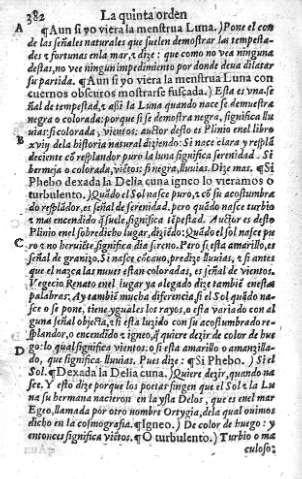 382 La quinta orden
A ¶Aun si yo viera la menstrua Luna.) Pone el con
de las señales naturales que suelen demostrar las tempesta-
des z fortunas en la mar, z dize: que como no vea ninguna
destas, no vee ningun impedimento por donde deua dilatar
su partida. ¶Aun si yo viera la menstrua Luna con
cuernos obscuros mostrarse fuscada.) Esta es vna se
ñal de tempestad, z assi la Luna quando nace se demuestra
negra o colorada: porque si se demostra negra, significa llu
uias: si colorada, vientos: auctor desto es Plinio en el libro
B xviij dela historia natural diziendo: Si nace clara y respla
deciente cõ resplandor puro la luna significa serenidad. Si
bermeja o colorada, viẽtos: si negra, lluuias. Dize mas. ¶Si
Phebo dexada la Delia cuna igneo lo vieramos o
turbulento.) Quãdo el Sol nasce puro, z cõ su acostumbra
do resplãdor, es señal de serenidad, pero quãdo nasce turbio
z mas encendido q̃ suele, significa tẽpestad. Auctor es desto
Plinio en el sobredicho lugar, diziẽdo: Quãdo el sol nasce pu
C ro z no heruiẽte, significa dia sereno. Pero si esta amarillo, es
señal de granizo. Si nasce cõcauo, predize lluuias, z si antes
que el nazca las nuues estan coloradas, es señal de vientos.
Vegecio Renato en el lugar ya alegado dize tambiẽ enestas
palabras: Ay tambiẽ mucha diferencia, si el Sol quãdo na-
sce o se pone, tiene yguales los rayos, o esta variado con al
guna señal objecta, z si esta luzido con su acostumbrado re-
splandor, o encendido z igneo, q̃ quiere dezir de color de fue
D go: lo qual significa vientos. o si esta amarillo o amanzilla-
do, que significa lluuias. Pues dize: ¶Si Phebo.) Si el
Sol. ¶Dexada la Delia cuna.) Quiere dezir, quando na
sce. Y esto dize porque los poetas fingen que el Sol z la Lu
na su hermana nacieron en la ysla Delos, que es enel mar
Egeo, llamada por otro nombre Ortygia, dela qual ouimos
dicho en la cosmografia. ¶Igneo.) De color de fuego: y
entonces significa viẽtos. ¶O turbulento.) Turbio o ma
culoso: